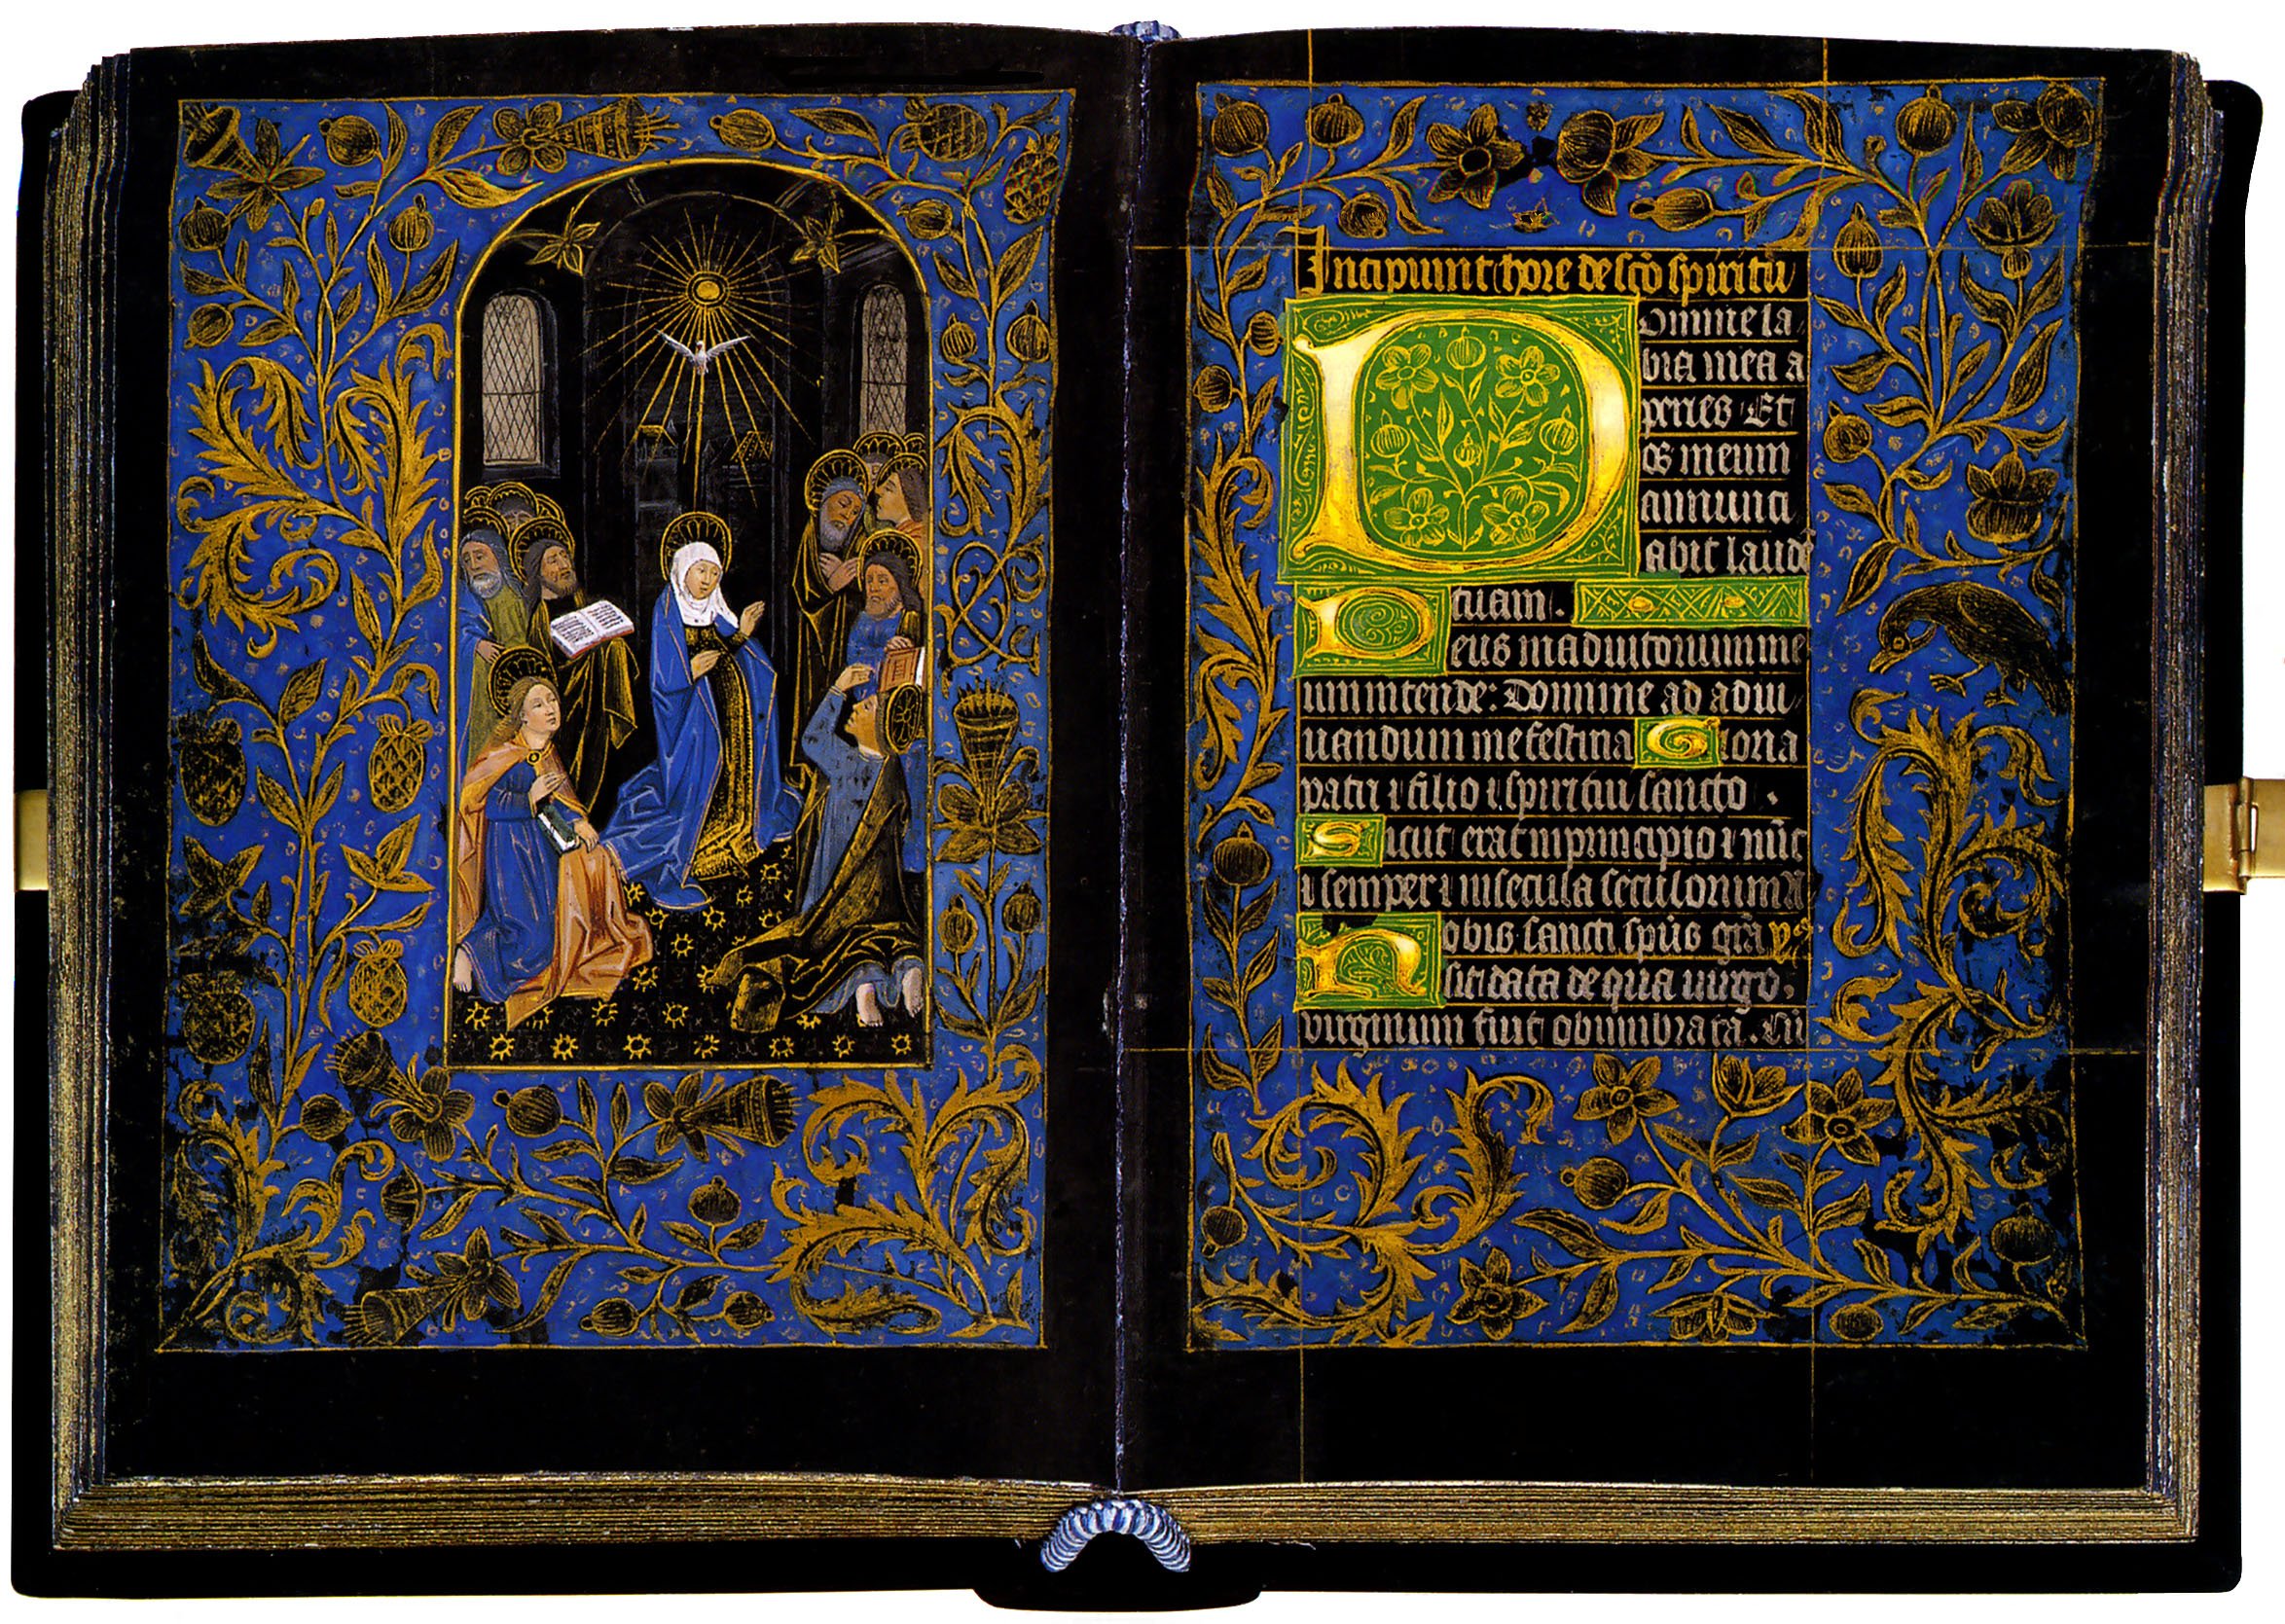 Incipiunt hore de sco spiritu
Domine la
bia mea a
peries Et
os meum
annunci
abit laude
tuam.
Deus in adiutorium me
um intende: Domine ad adiu
uandum me festina Gloria
patri ⁊ filio ⁊ spiritui sancto .
Sicut erat in principio ⁊ nūc
⁊ semper ⁊ in secula seculorum A
Nobis sancti spūs grā
sit data de qua uirgo
virginum fuit obumbrata. Cū